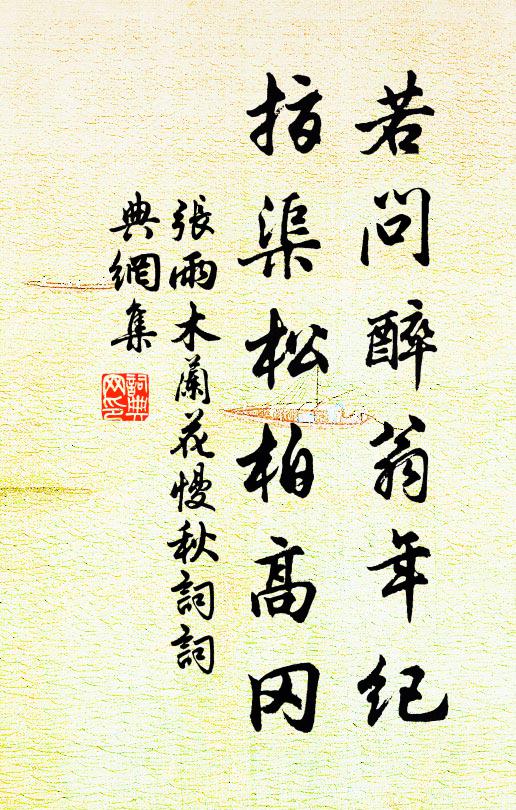 若問醉翁年紀
指渠松柏高岡
張雨木蘭花慢秋詞詞
典網集
詞典網印